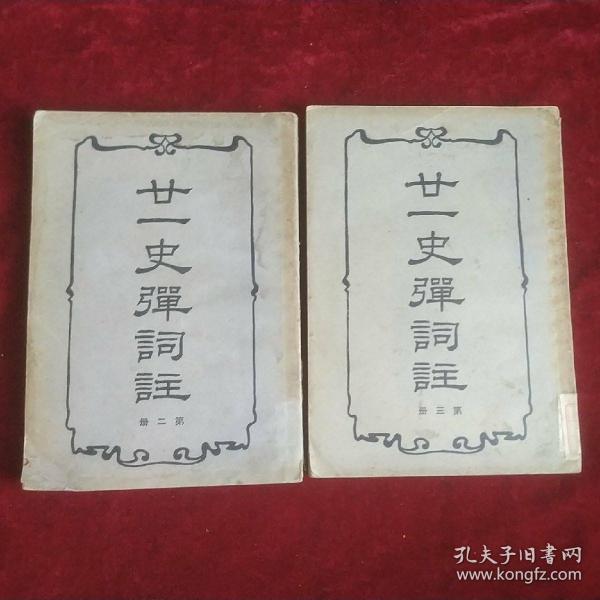 廿一史彈詞註
第二册
廿一史彈詞註
第三册
孔夫子旧书网
www.kongfz.com